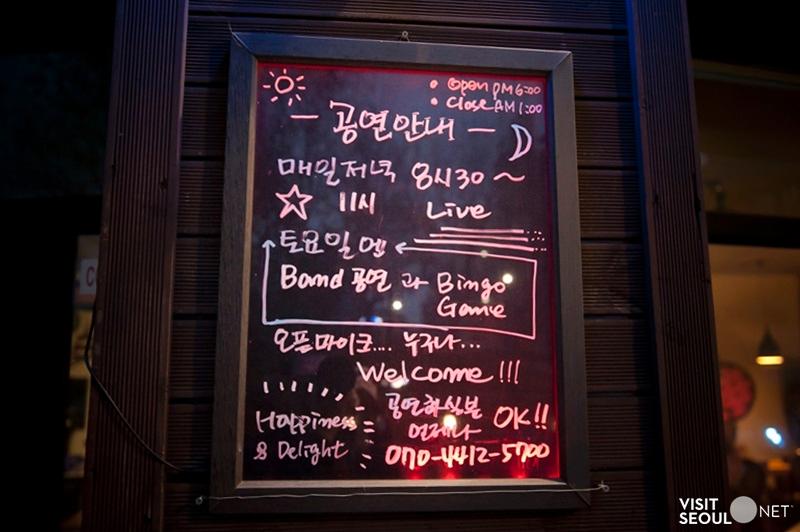 • Open PM 6:00
• Close AM 1:00
— 공연안내 —
매일저녁 8시30 ~
☆ 11시 Live
토요일엔
Band 공연 과 Bingo
Game
오픈마이크.... 누구나...
Welcome !!!
Happiness
& Delight
공연하실분
언제나 OK!!
070-4412-5700
VISIT
SEOUL NET